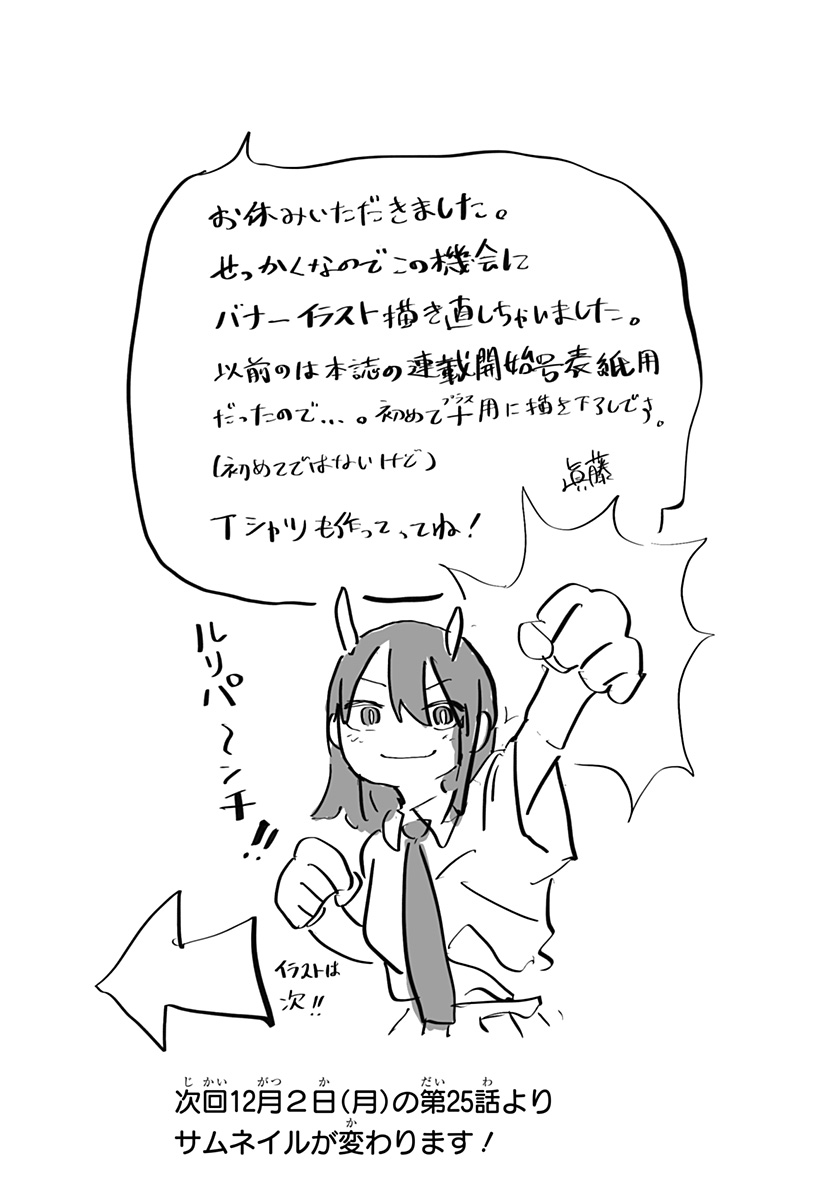 お休みいただきました。
せっかくなのでこの機会に
バナーイラスト描き直しちゃいました。
以前のは本誌の連載開始号表紙用
だったので…。初めて＋用に描き下ろしです。
プラス
(初めてではないけど)
眞藤
Tシャツも作ってってね!
ルリパ〜ンチ!!
イラストは
次!!
じかい がつ か だい わ
次回12月2日(月)の第25話より
か
サムネイルが変わります!